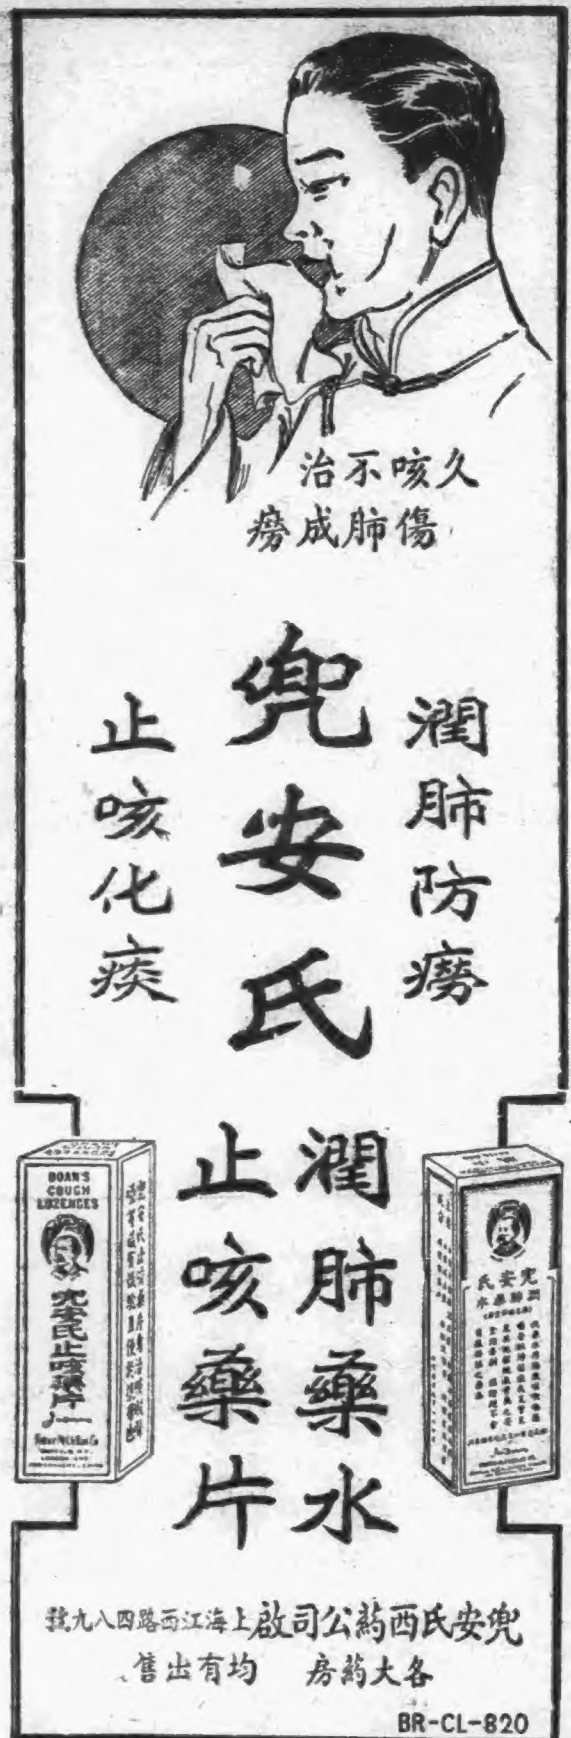 久咳不治
傷肺成癆
潤肺防癆
兜安氏
止咳化痰
潤肺藥水
止咳藥片
DOAN'S
COUGH
LOZENGES
兜安氏止咳藥片
兜安氏
潤肺藥水
兜安氏西葯公司啟上海江西路四八九號
各大葯房 均有出售
BR-CL-820